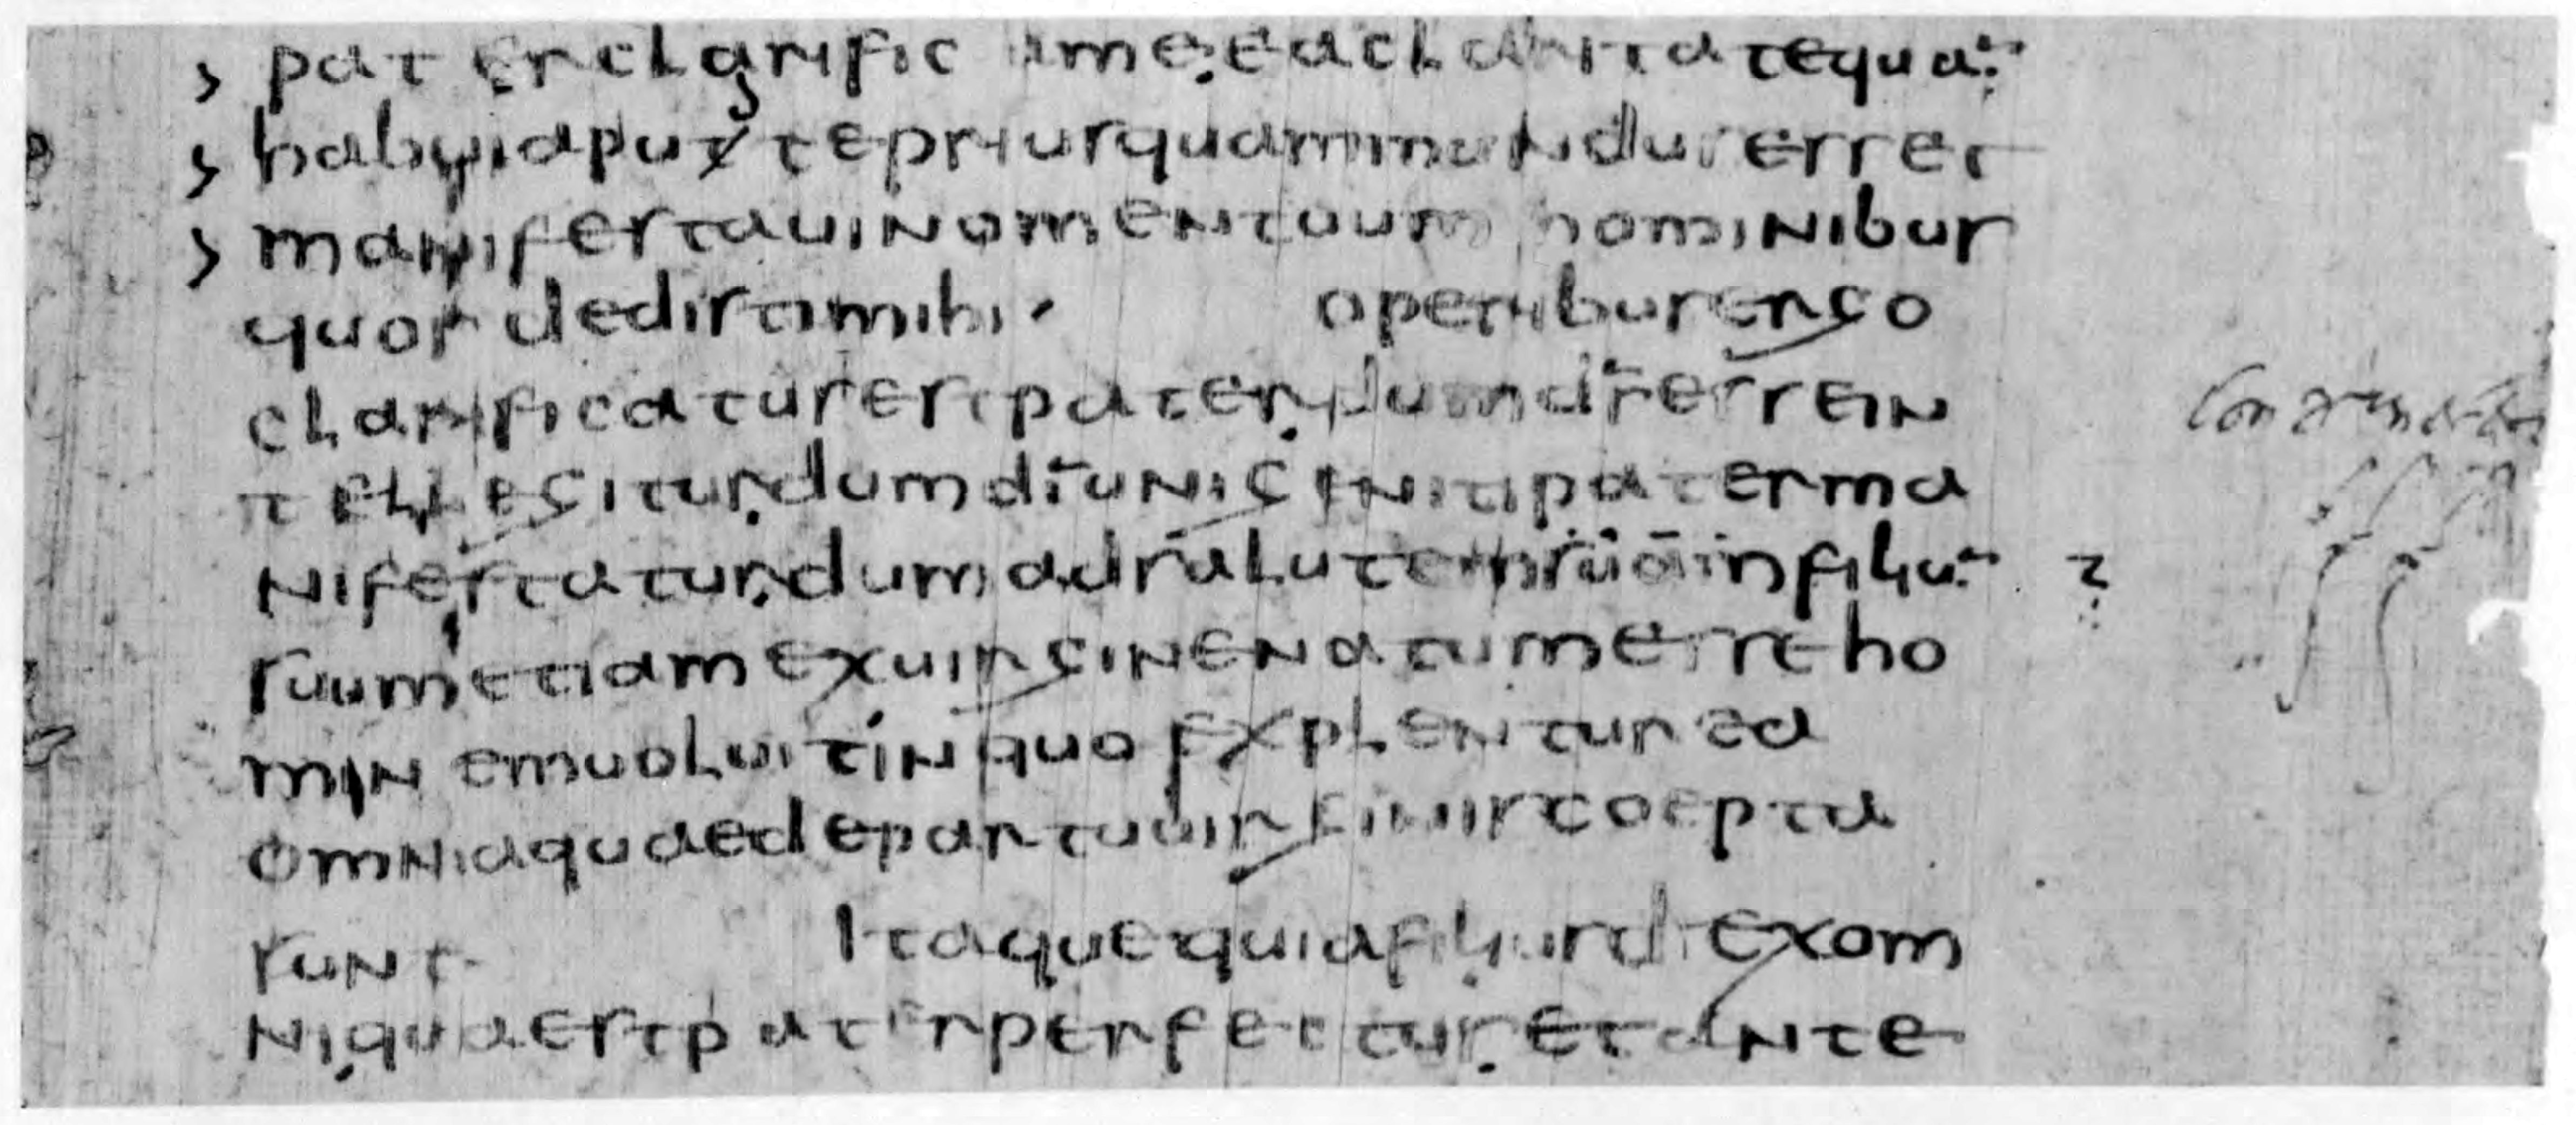 > pater clarifica me ea claritate qua̅
> habui apud te priusquam mundus esset
> manifestaui nomen tuum hominibus
quos dedisti mihi · operibus ergo
clarificatus est pater dum d̅s̅ esse in
tellegitur dum d̅s̅ unigeniti pater ma
nifestatur dum ad salutem n̅r̅a̅m̅ filiu̅
suum etiam ex uirgine natum esse ho
minem uoluit in quo explentur ea
omnia quae de partu uirginis coepta
sunt Itaque quia filius d̅i̅ ex om
ni qua est pater perfectus et ante